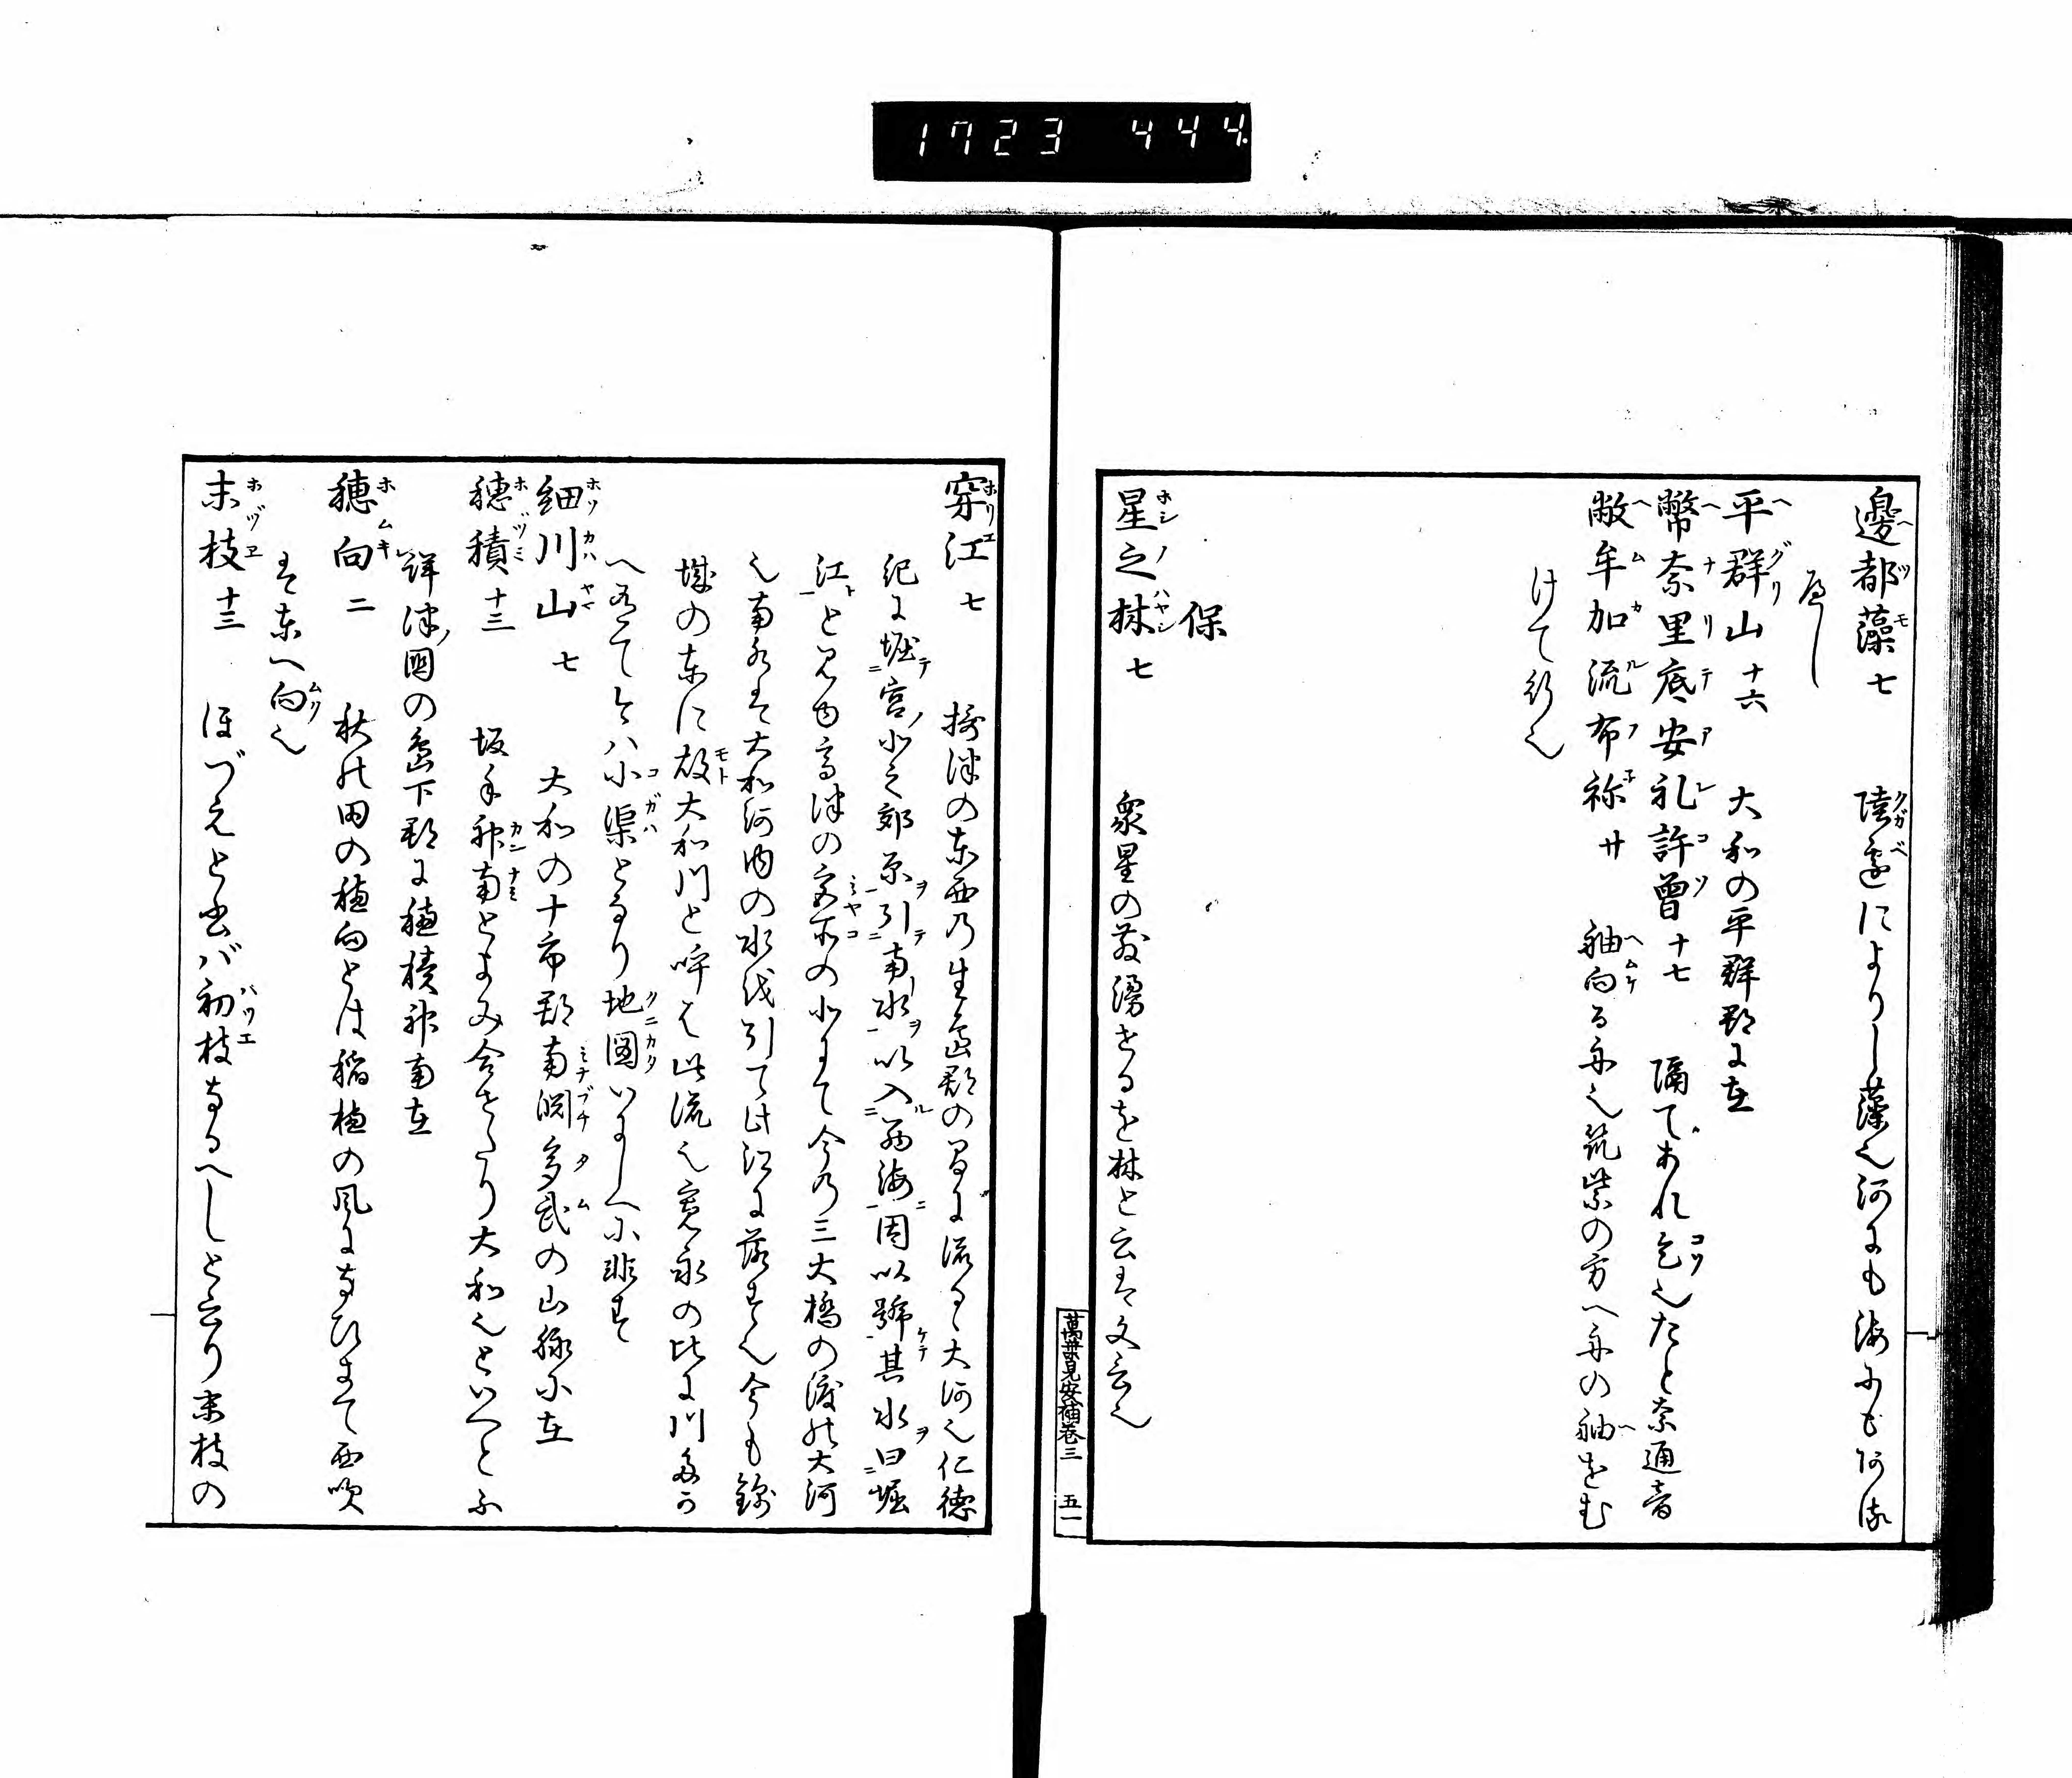 1723 444
邊都藻七 陸邊によりし藻也河にも海にもあ
るへし
平群山十六 大和の平群郡に在
幣奈里底安礼許曾十七 隔てあれこそ也たと奈通音
敝牟加流布祢廿 舳向る舟也筑紫の方へ舟の舳をむ
けて行也
保
星之林七 衆星の森湧せるを林と云は文言也
萬葉見安補卷三 五一
穿江七 摂津の東西乃生郡の間に流るゝ大河也仁徳
紀に堀宮北之郊原引南水以入西海因以號其水曰堀
江と見ゆ高津の宮の北にて今乃三大橋の渡れ大河
也南は大和河内の水を引て此江に落す也今も
城の東に故大和川と呼は此流也寛永の比に川
へ今は小渠となり地圖いにしへに非す
細川山七 大和の十市郡南淵多武の山脈に在
穂積十三 坂手神南とよみ合せたり大和也といへとふ
津國の島下郡に穂積神南在
穂向二 秋の田の穂向とは稲穂の風になひきて西吹
は東へ向也
末枝十三 ほづえと出バ初枝なるへしと云り末枝の